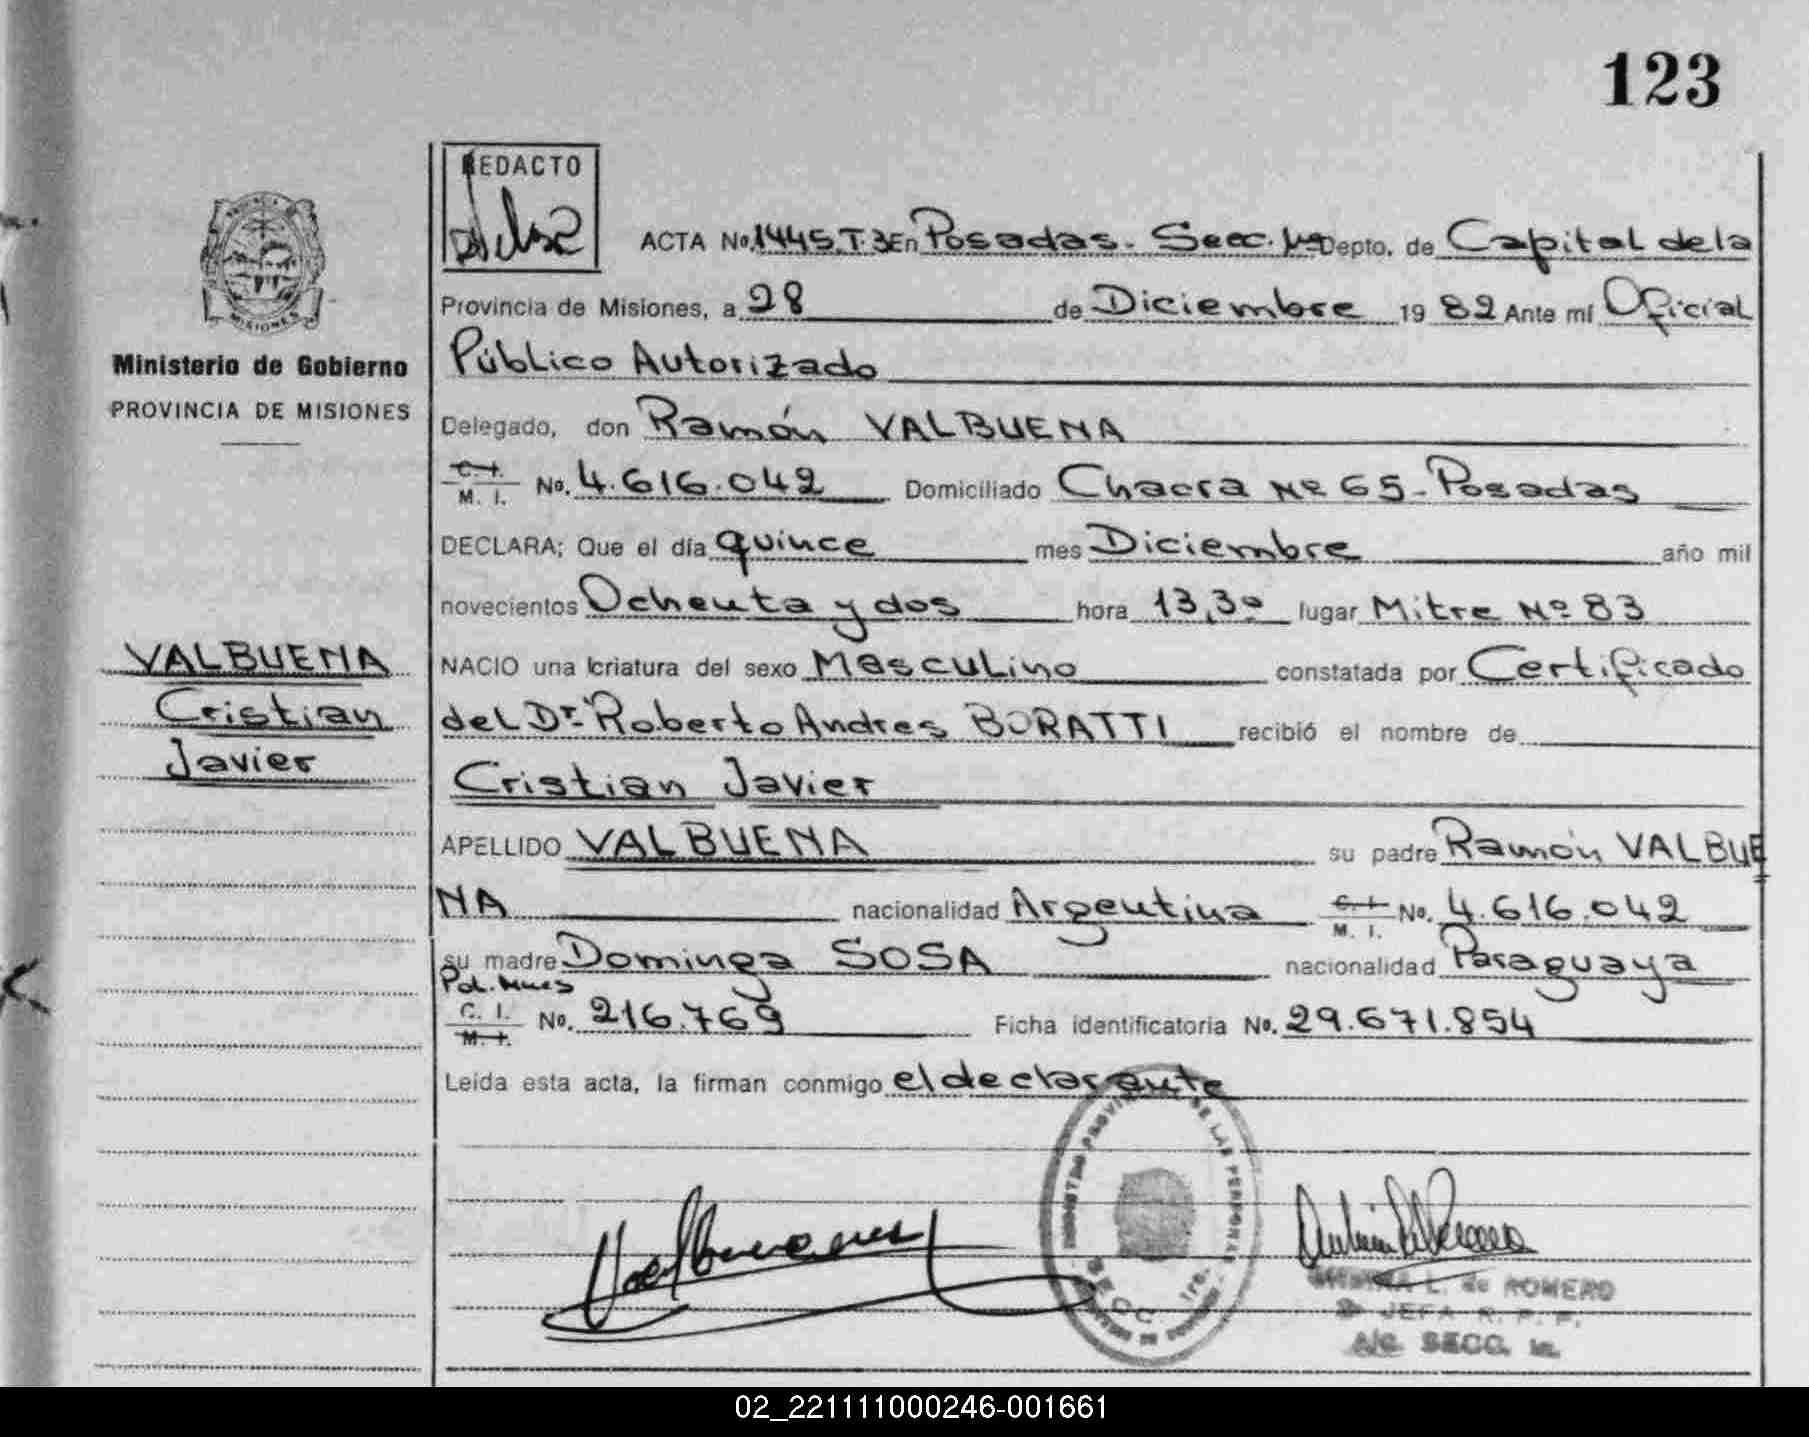 123
REDACTO
ACTA No. 1445.T.3 En Posadas. Secc. 1ra Depto. de Capital de la
Provincia de Misiones, a 28 de Diciembre 19 82 Ante mí Oficial
Público Autorizado
MISIONES
Ministerio de Gobierno
PROVINCIA DE MISIONES
Delegado, don Ramón VALBUENA
C. I. M. I. No. 4.616.042 Domiciliado Chacra Nº 65 - Posadas
DECLARA; Que el día quince mes Diciembre año mil
novecientos Ochenta y dos hora 13,30 lugar Mitre Nº 83
VALBUENA
Cristian
Javier
NACIO una criatura del sexo Masculino constatada por Certificado
del Dr. Roberto Andres BORATTI recibió el nombre de
Cristian Javier
APELLIDO VALBUENA su padre Ramón VALBUE
NA nacionalidad Argentina C. I. M. I. No. 4.616.042
su madre Dominga SOSA nacionalidad Paraguaya
Pol. Mnes
C. I. M. I. No. 216.769 Ficha identificatoria No. 29.671.854
Leída esta acta, la firman conmigo el declarante
REGISTRO PROVINCIAL DE LAS PERSONAS
SECC. 1ra.
L. de ROMERO
JEFA R. P. P.
A/C. SECC. 1a.
02_221111000246-001661